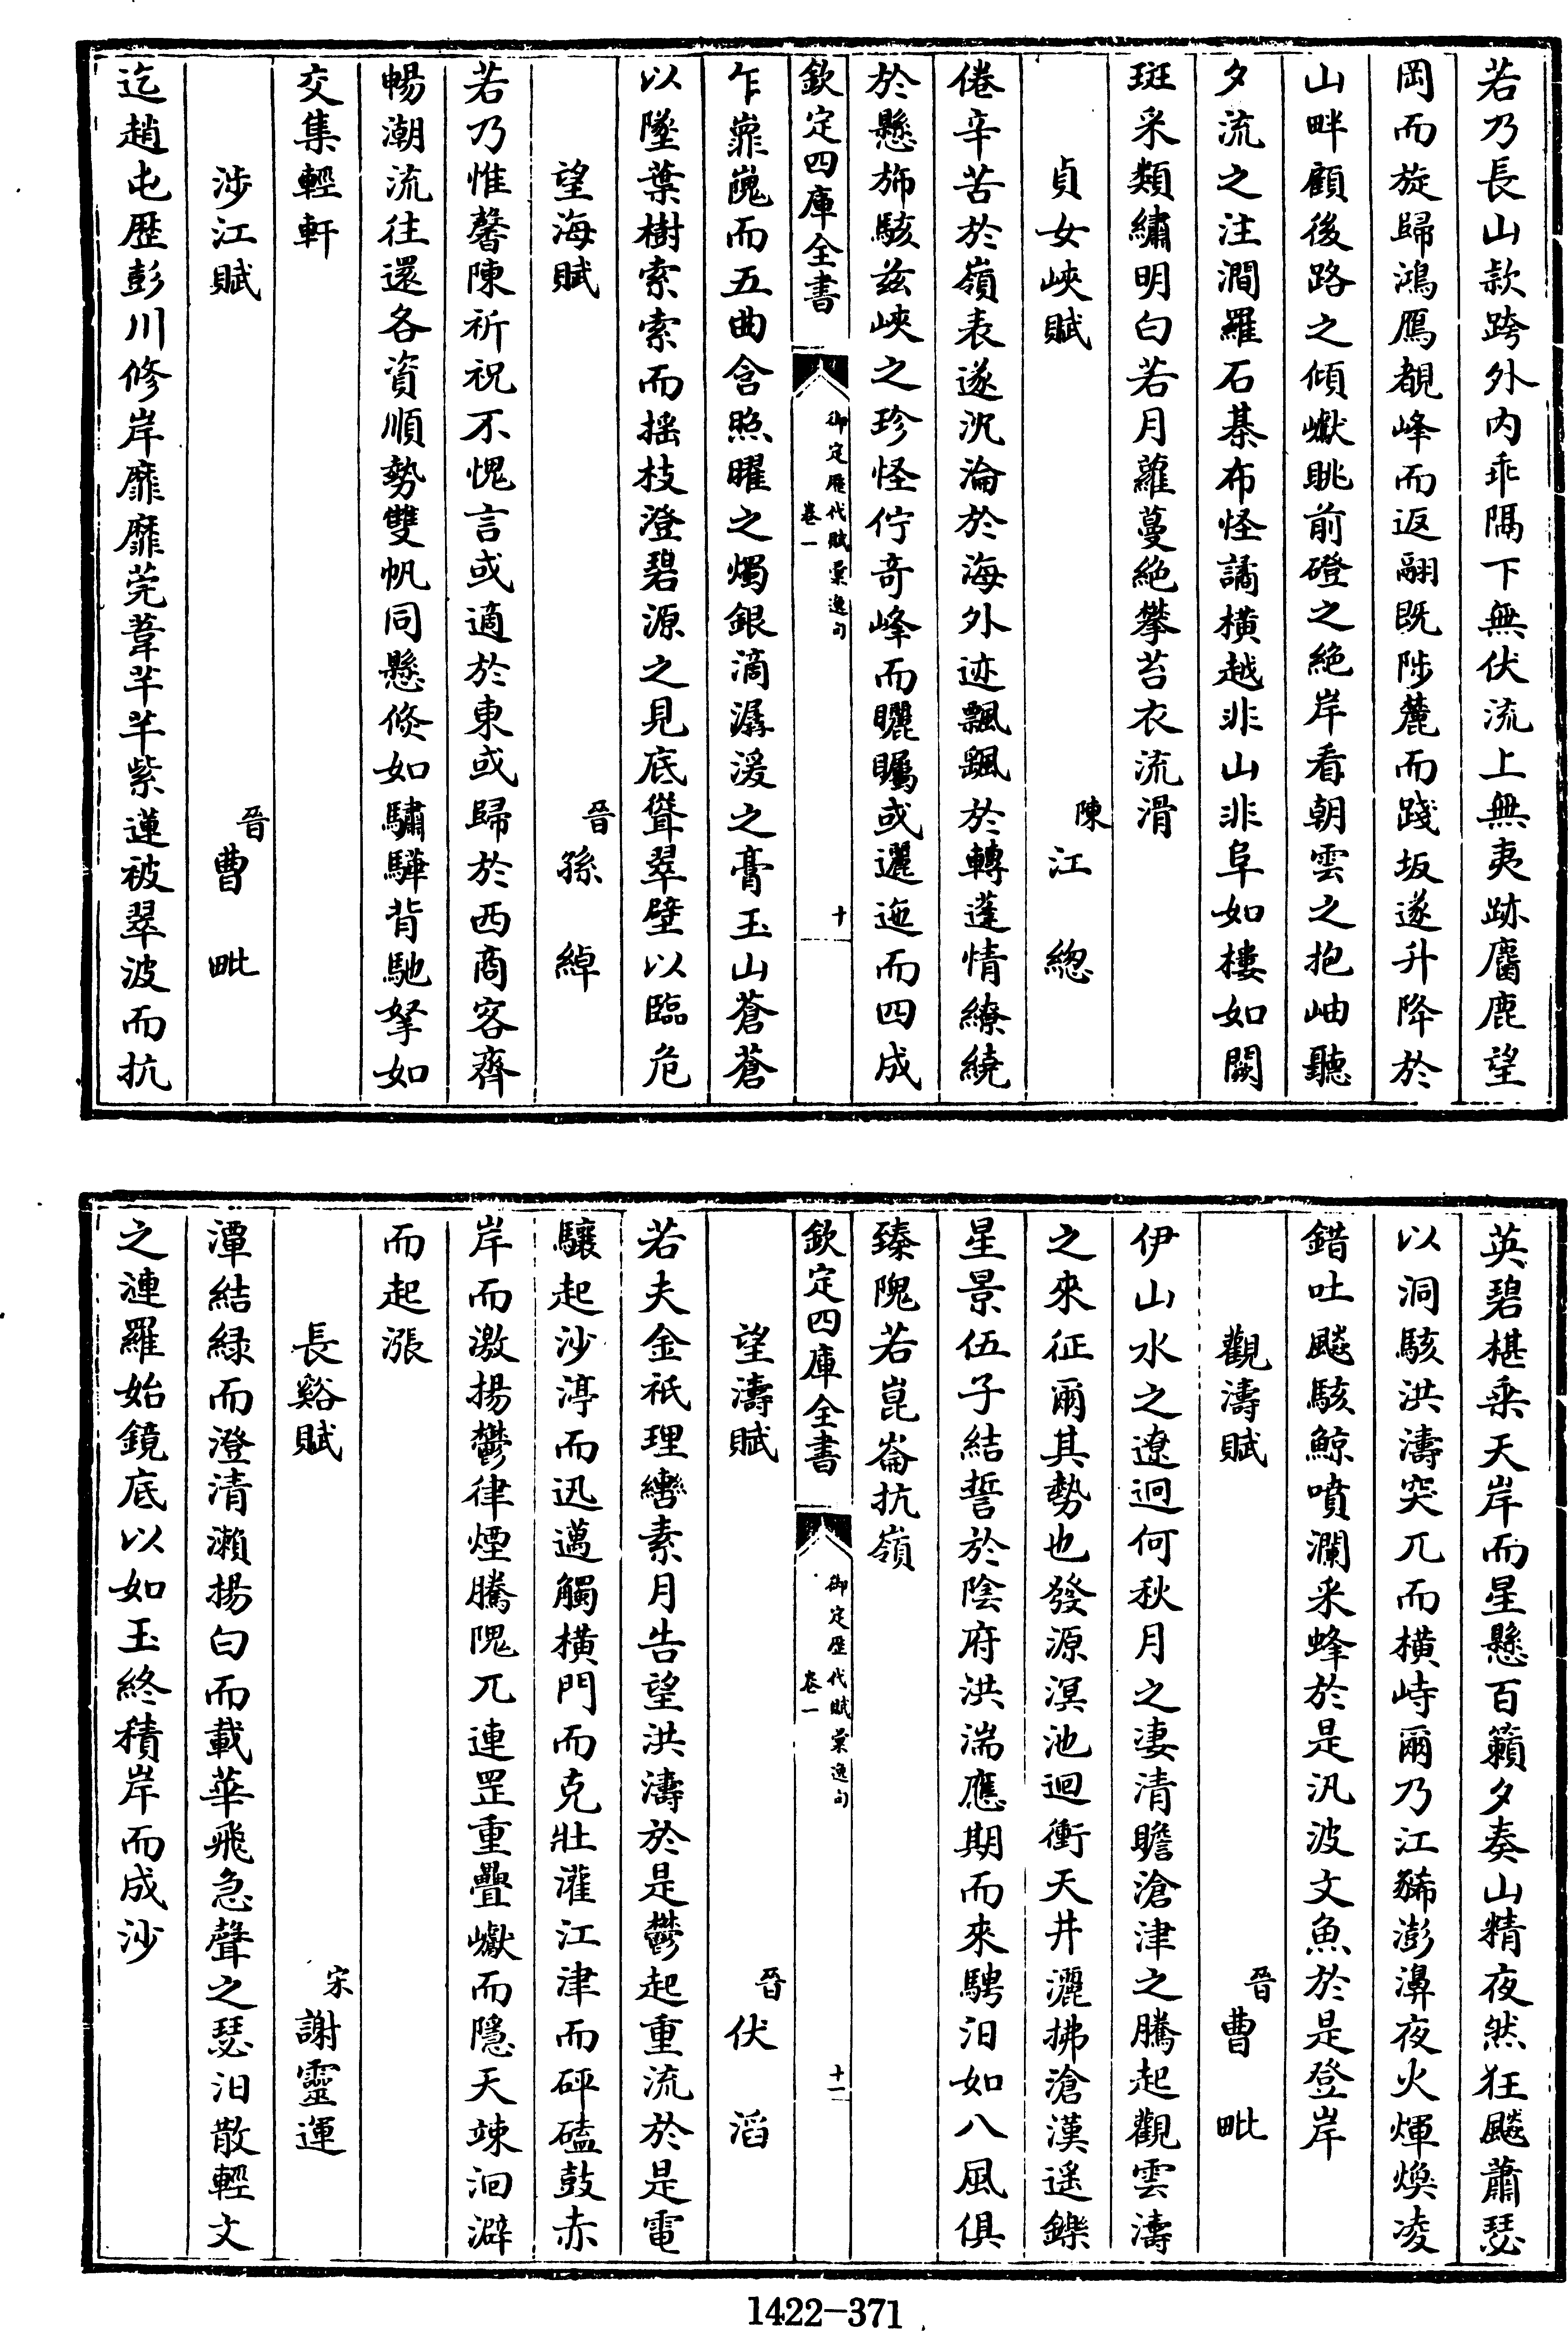 若乃長山款跨外内乖隔下無伏流上無夷跡麕鹿望
岡而旋歸鴻鴈覩峰而返翮既陟麓而踐坂遂升降於
山畔顧後路之傾巘眺前磴之絶岸看朝雲之抱岫聽
夕流之注澗羅石棊布怪譎横越非山非阜如樓如闕
斑采類繡明白若月蘿蔓絶攀苔衣流滑
貞女峽賦　陳江總
倦辛苦於嶺表遂沉淪於海外迹飄飄於轉蓬情繚繞
於懸旆駭兹峽之珍怪佇奇峰而矖矚或邐迤而四成
欽定四庫全書　御定歷代賦彙逸句　卷一　十
乍巃嵷而五曲含照曜之燭銀滴潺湲之膏玉山蒼蒼
以墜葉樹索索而摇枝澄碧源之見底聳翠壁以臨危
望海賦　晉孫綽
若乃惟馨陳祈祝不愧言或適於東或歸於西商客齊
暢潮流往還各資順勢雙帆同懸倐如驌驊背馳拏如
交集輕軒
涉江賦　晉曹毗
迄趙屯歷彭川修岸靡靡莞葦芊芊紫蓮被翠波而抗
英碧椹乘天岸而星懸百籟夕奏山精夜然狂飈蕭瑟
以洞駭洪濤突兀而横峙爾乃江豨澎濞夜火煇煥凌
錯吐飈駭鯨噴瀾采蜂於是汎波文魚於是登岸
觀濤賦　晉曹毗
伊山水之遼迥何秋月之凄清瞻滄津之騰起觀雲濤
之來征爾其勢也發源溟池迴衝天井灑拂滄漢遥鑠
星景伍子結誓於陰府洪湍應期而來騁汨如八風俱
臻隗若崑崙抗嶺
欽定四庫全書　御定歷代賦彙逸句　卷一　十一
望濤賦　晉伏滔
若夫金祇理轡素月告望洪濤於是鬱起重流於是電
驤起沙渟而迅邁觸横門而克壯灌江津而砰磕鼓赤
岸而激揚鬱律煙騰隗兀連罡重疊巘而隱天竦洄澼
而起漲
長谿賦　宋謝靈運
潭結緑而澄清瀨揚白而載華飛急聲之瑟汨散輕文
之漣羅始鏡底以如玉終積岸而成沙
1422-371